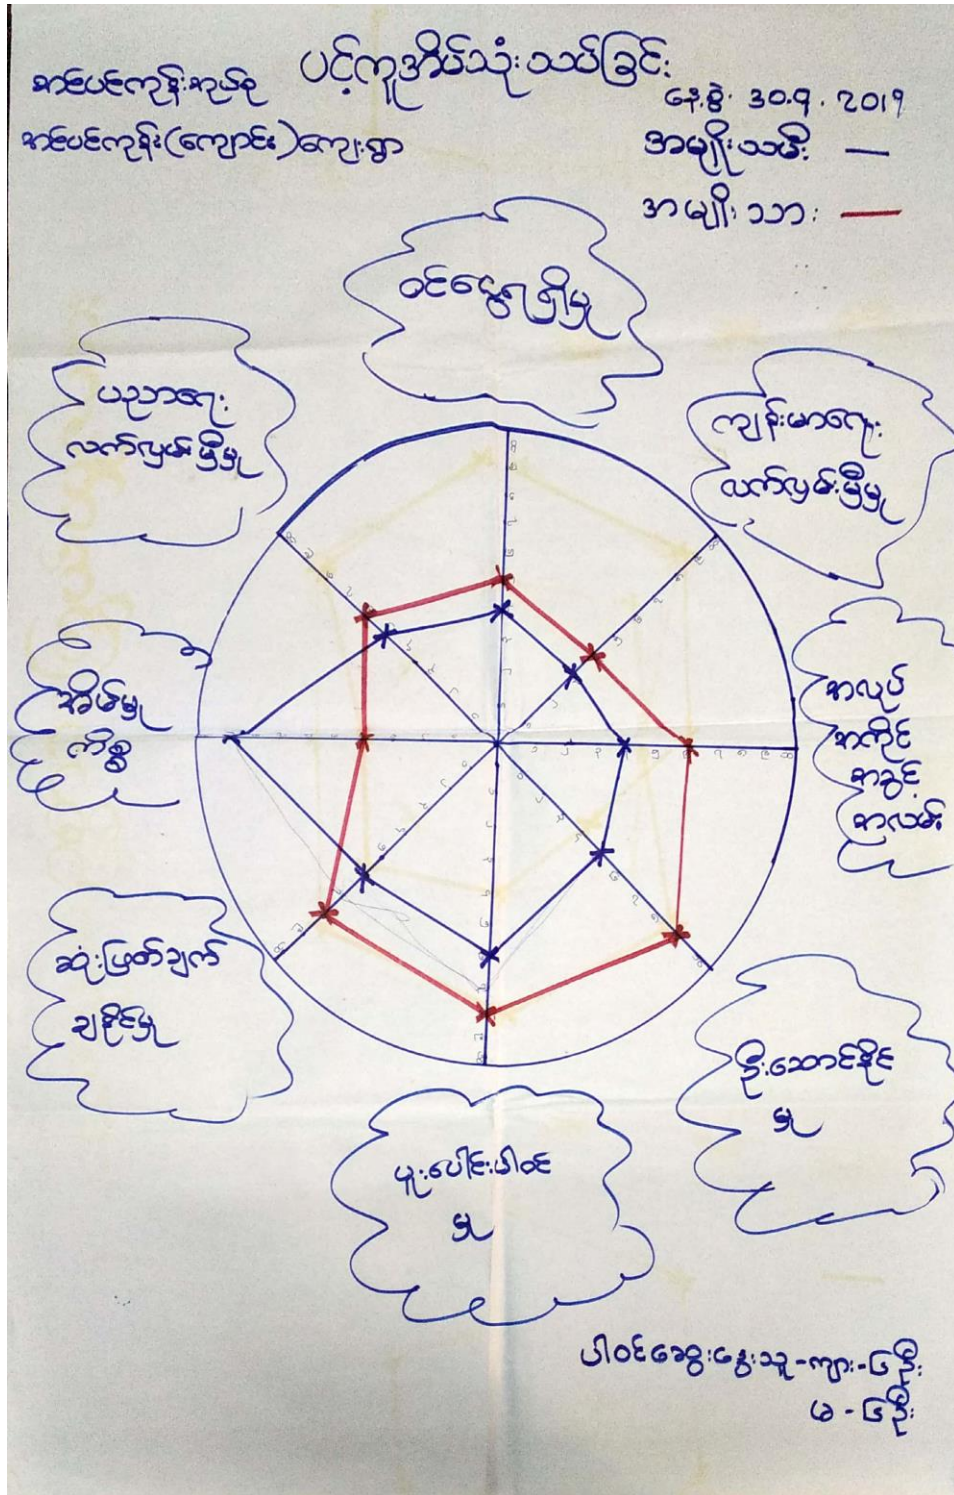 ပင့်ကူအိမ်သုံးသပ်ခြင်း
ဇာင်ပင်ကုန်းအုပ်စု
နေ့စွဲ. ၃၀.၇.၂၀၁၇
ဇာင်ပင်ကုန်း(ကျောင်း)ကျေးရွာ
အမျိုးသမီး —
အမျိုးသား —
ဝင်ငွေရရှိမှု
ပညာရေး
လက်လှမ်းမှီမှု
ကျန်းမာရေး
လက်လှမ်းမှီမှု
အိမ်မှု
ကိစ္စ
အလုပ်
အကိုင်
အခွင့်
အလမ်း
ဆုံးဖြတ်ချက်
ချနိုင်မှု
ဦးဆောင်နိုင်
မှု
ပူးပေါင်းပါဝင်
မှု
ပါဝင်ဆွေးနွေးသူ-ကျား-၆ဦး
မ - ၆ဦး